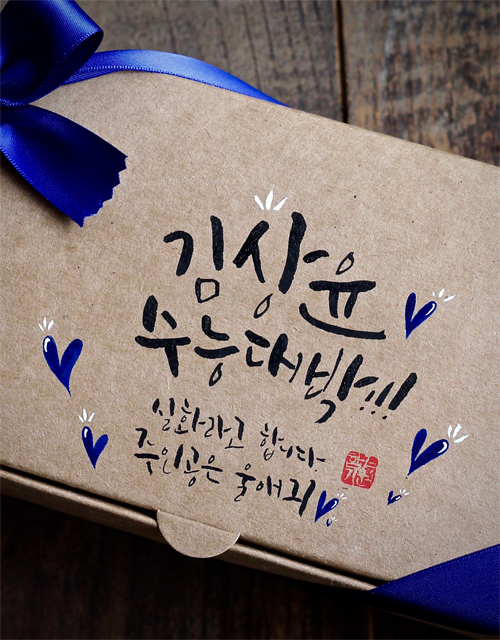 김상윤
수능대박!!!
실화라고 합니다
주인공은 울애기